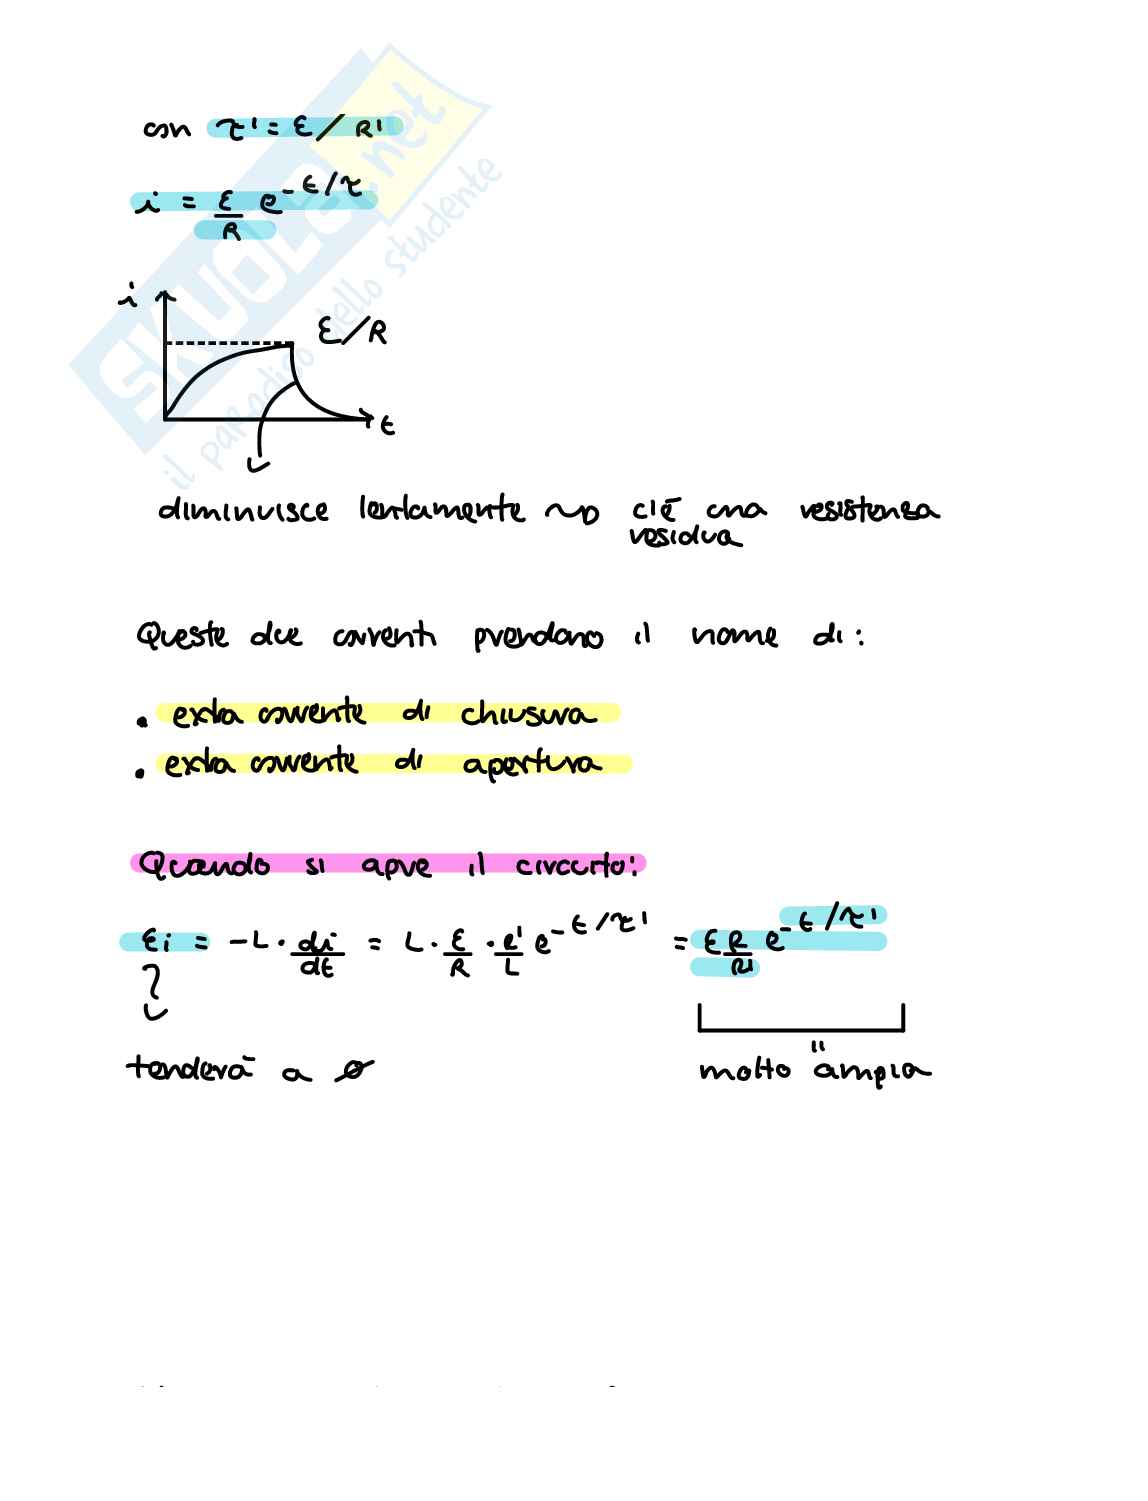 con τ' = ε/R'
i = ε/R e^-t/τ
i
ε/R
t
diminuisce lentamente ~> c'è una resistenza
residua
Queste due correnti prendono il nome di:
• extra corrente di chiusura
• extra corrente di apertura
Quando si apre il circuito:
εi = -L · di/dt = L · ε/R · e'/L e^-t/τ' = ε R/R' e^-t/τ'
tenderà a ø molto "ampia
SKUOLA.net
il paradiso dello studente